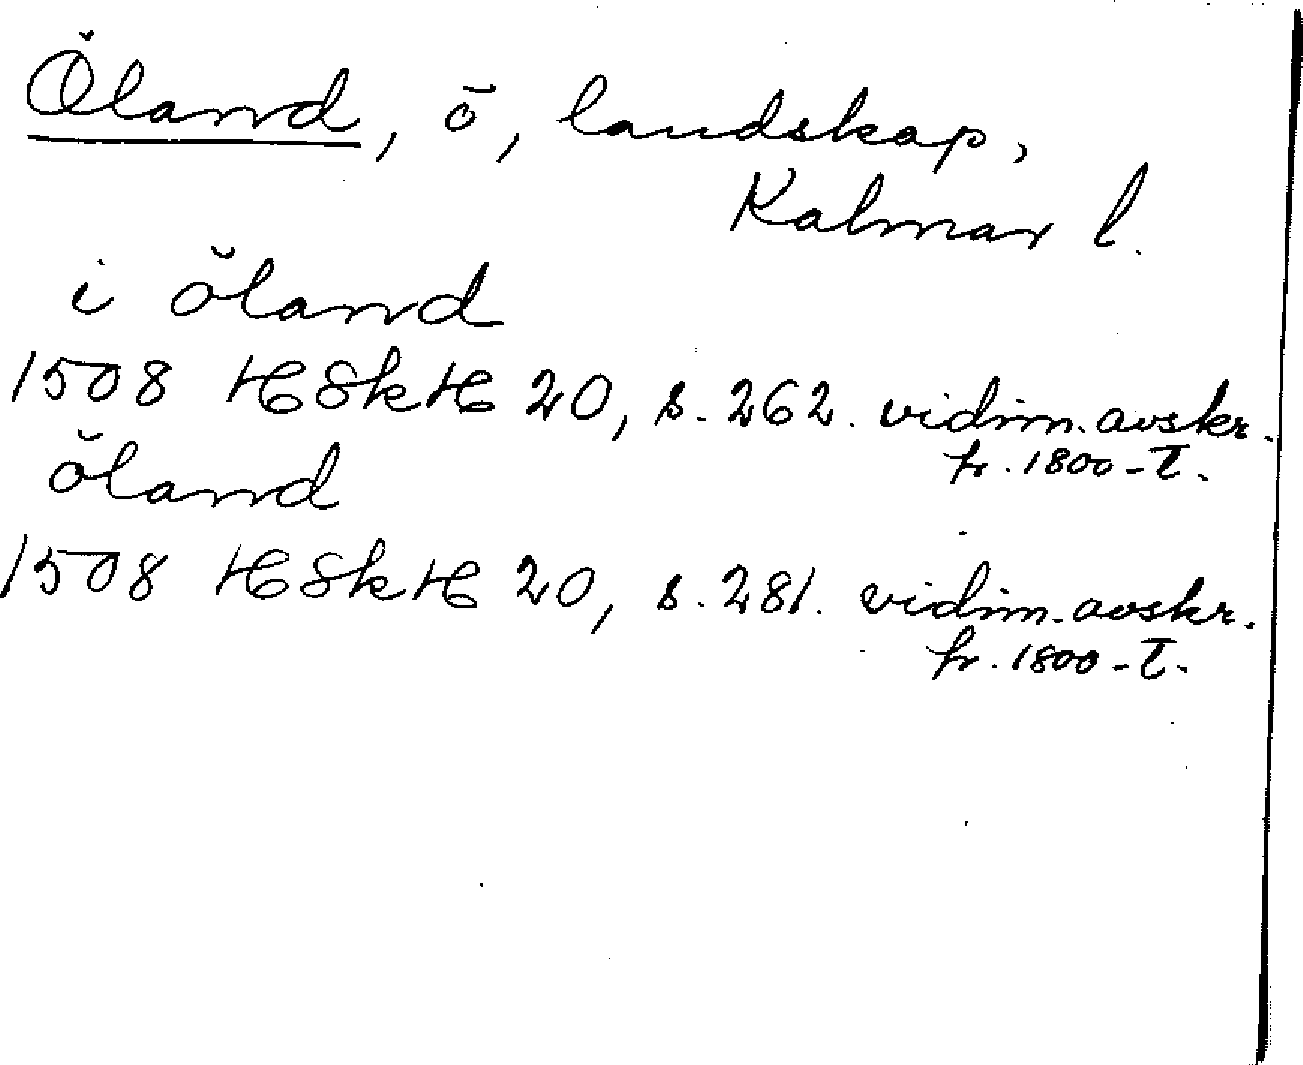 Öland, ö, landskap,
Kalmar l.
i öland
1508 HSkH 20, s. 262. vidim. avskr.
fr. 1800-t.
öland
1508 HSkH 20, s. 281. vidim. avskr.
fr. 1800-t.